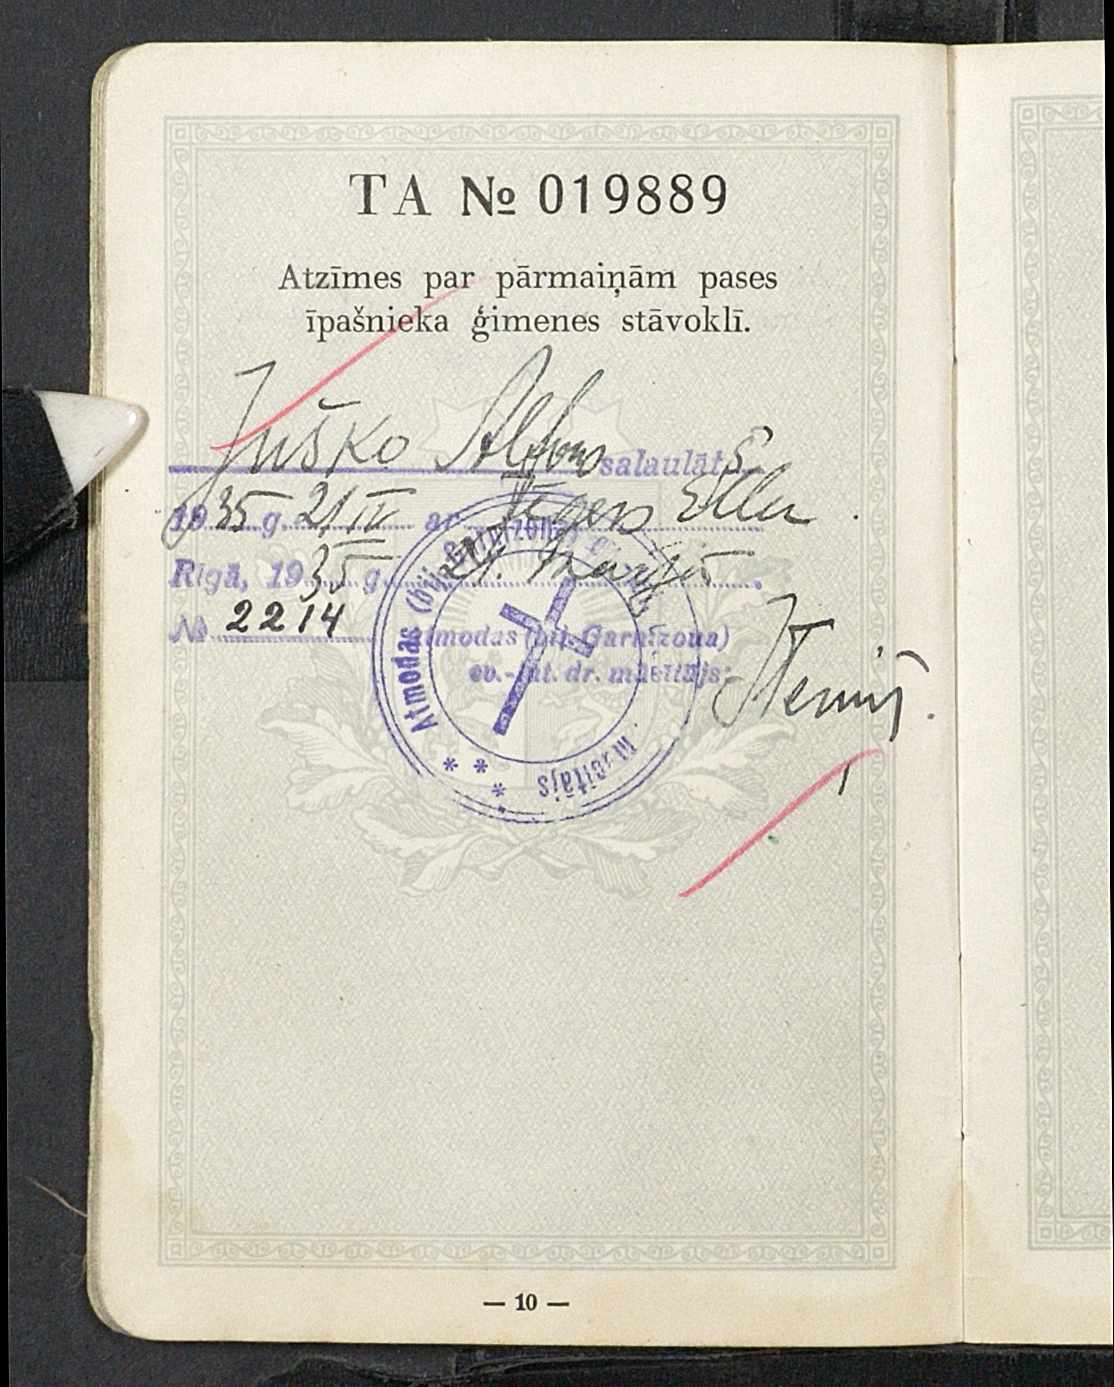 TA № 019889
Atzīmes par pārmaiņām pases
īpašnieka ģimenes stāvoklī.
Juško Alfons salaulāts
1935 g. 21/IV ar Ella.
Rīgā, 1935 g.
№ 2214 Atmodas (bij. Garnizona)
ev.-lut. dr. mācītājs:
Atmodas (bij. Garnizona mācītājs
— 10 —